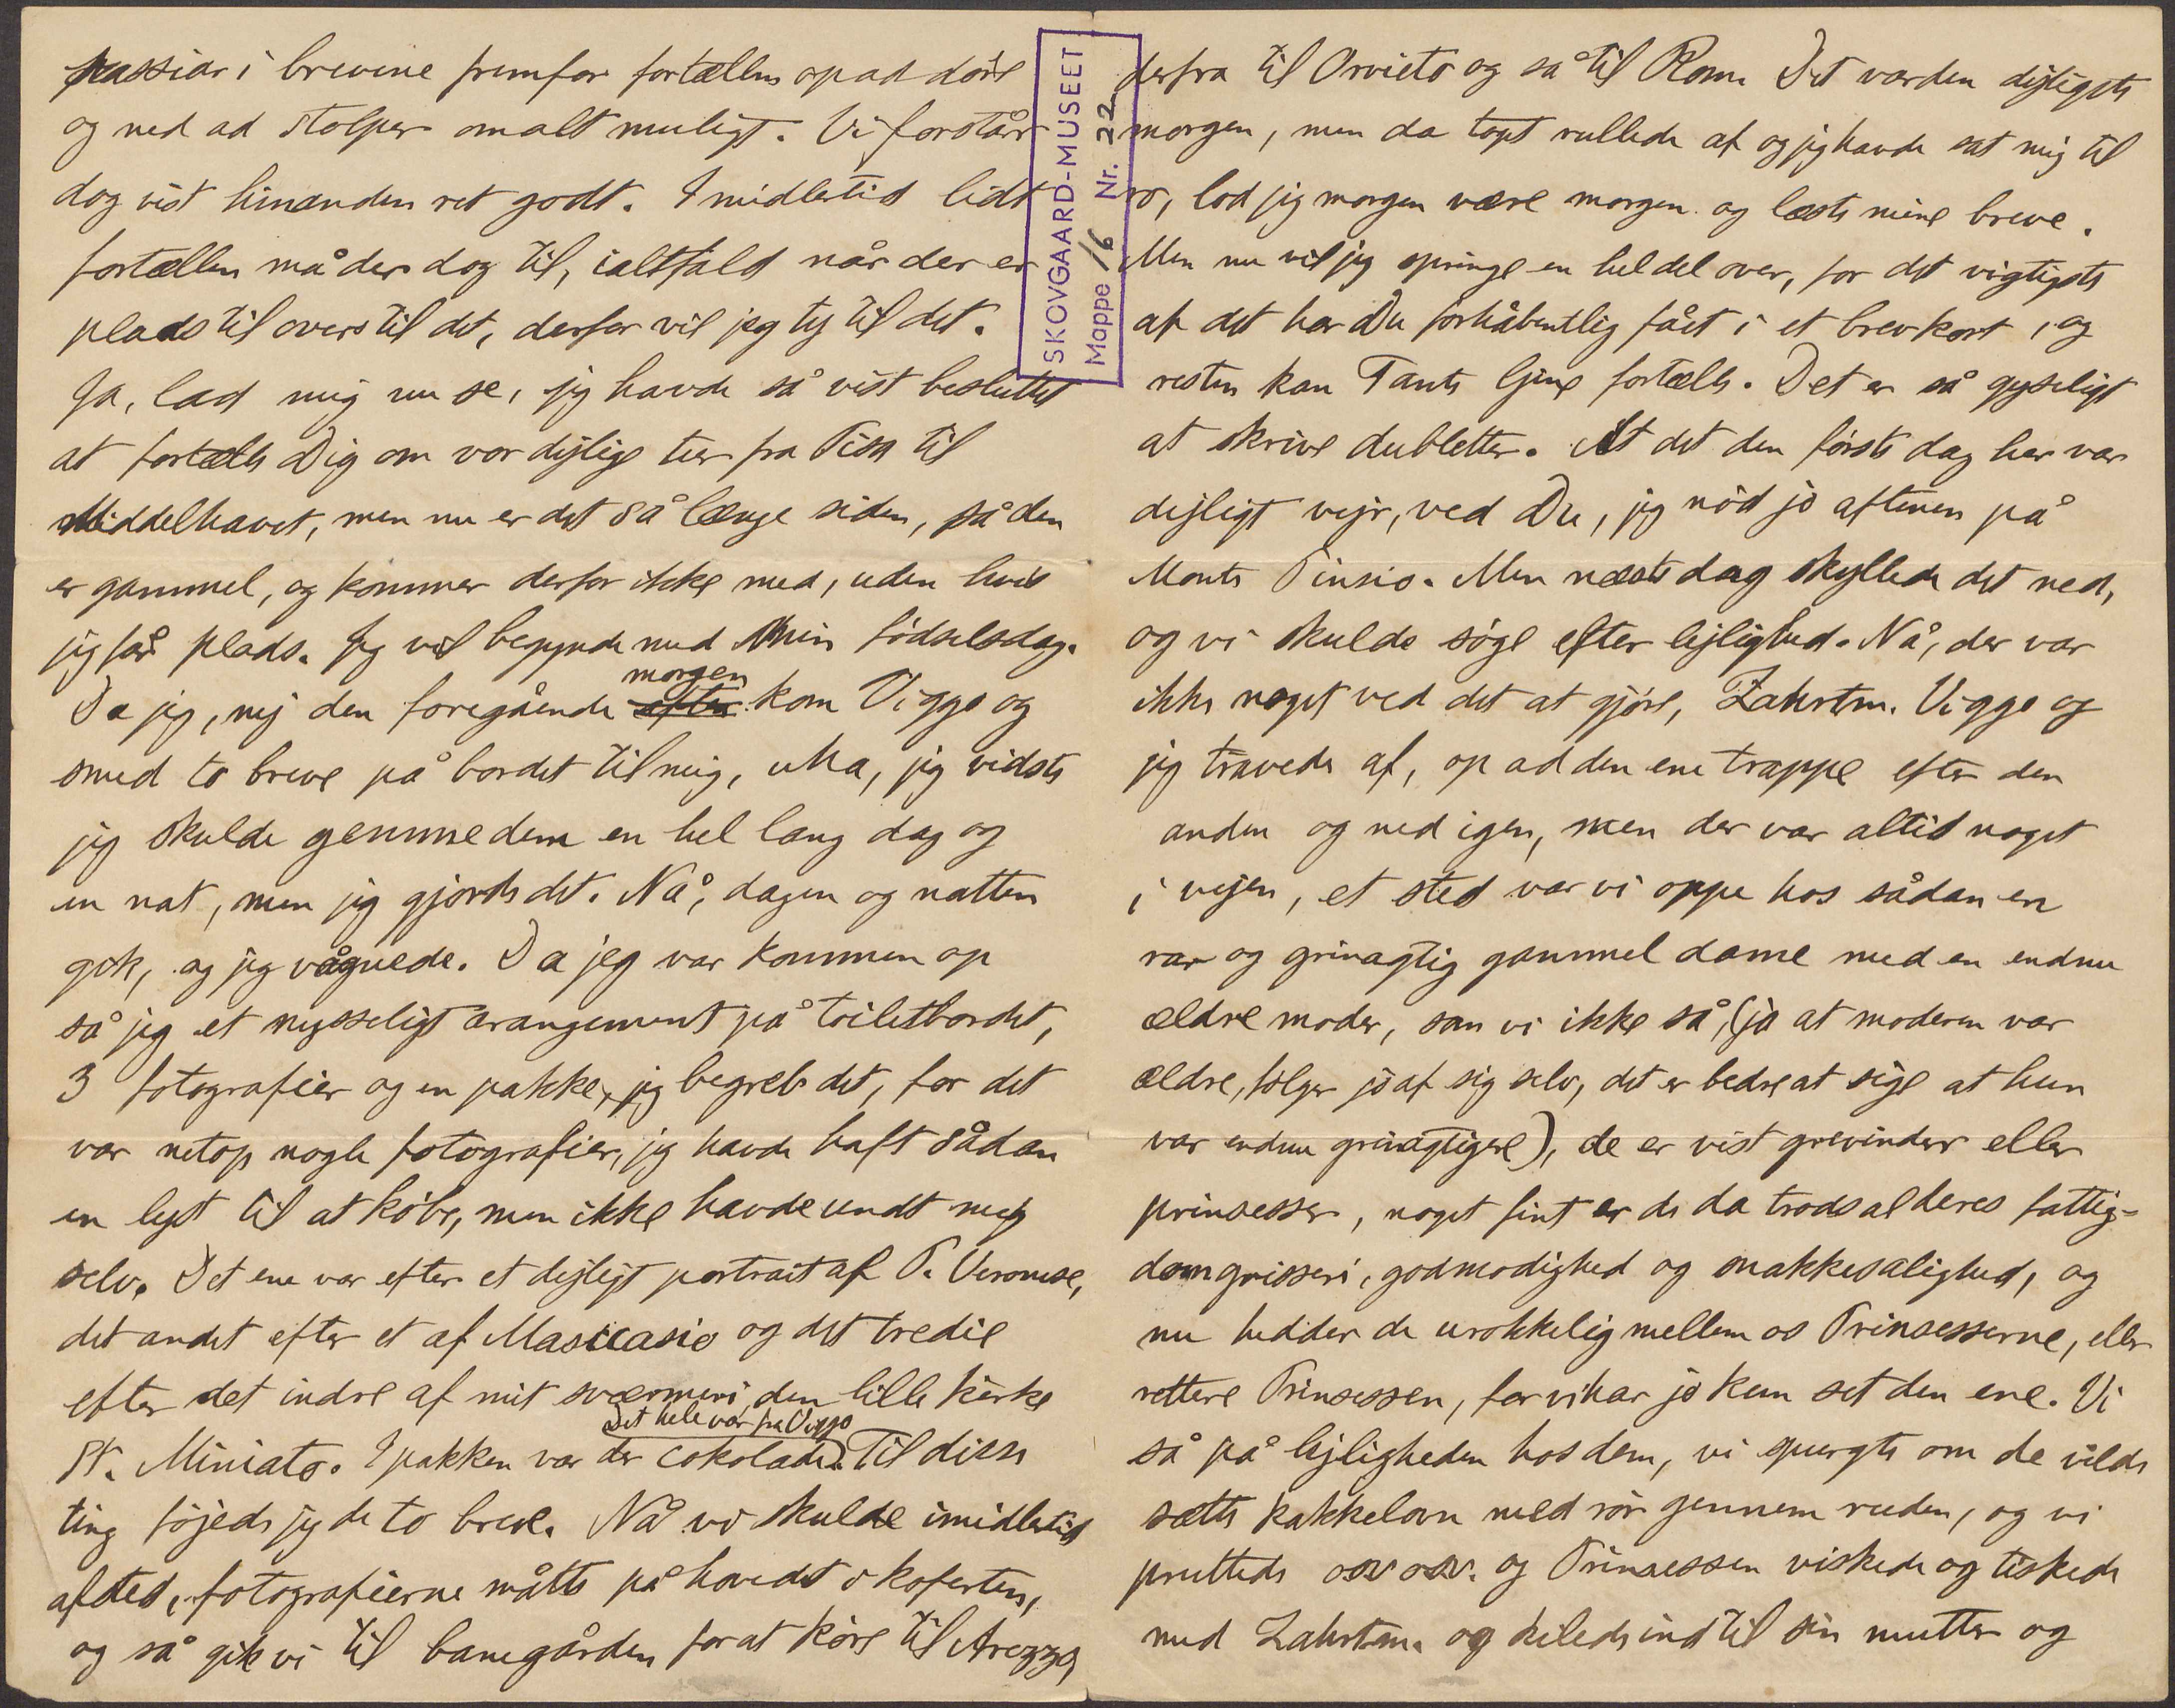 passiar i brevene fremfor fortællen op ad döre
og ned ad stolper om alt muligt. Vi forstår
dog vist hinanden ret godt. Imidlertid lidt
fortællen må der dog til, ialtfald når der er
plads til overs til det, derfor vil jeg ty til det.
Ja, lad mig nu se, jeg havde så vist besluttet
at fortælle Dig om vor dejlige tur fra Pisa til
Middelhavet, men nu er det så længe siden, så den
er gammel, og kommer derfor ikke med, uden hvis
jeg får plads. Jeg vil begynde med Min födselsdag.
Da jeg, nej den foregående after morgen kom Viggo og
smed to breve på bordet til mig, uha, jeg vidste
jeg skulde gemme dem en hel lang dag og
en nat, men jeg gjorde det. Nå, dagen og natten
gik, og jeg vågnede. Da jeg var kommen op
så jeg et nysseligt arangement på toiletbordet,
3 fotografier og en pakke, jeg begreb det, for det
var netop nogle fotografier, jeg havde haft sådan
en lyst til at köbe, men ikke havde undt mig
selv. Det ene var efter et dejligt portrait af P. Veronese,
det andet efter et af Masccasio og det tredie
efter det indre af mit sværmeri, den lille kirke
St. Miniato. I pakken var der cokolade. Det hele var fra Viggo Til disse
ting föjede jeg de to breve. Nå vi skulde imidlertid
afsted, fotografierne måtte på hovedet i koferten,
og så gik vi til banegården for at köre til Arezzo,
derfra til Orvieto og så til Rom. Det var den dejligste
morgen, men da toget rullede af og jeg havde sat mig til
ro, lod jeg morgen være morgen og læste mine breve.
Men nu vil jeg springe en hel del over, for det vigtigste
af det har Du forhåbentlig fået i et brevkort, og
resten kan Tante Gine fortælle. Det er så gyseligt
at skrive dubletter. At det den förste dag her var
dejligt vejr, ved Du, jeg nöd jo aftenen på
Monte Pinsio. Men næste dag skyllede det ned,
og vi skulde söge efter lejlighed. Nå, der var
ikke noget ved det at gjöre, Zahrtm. Viggo og
jeg travede af, op ad den ene trappe efter den
anden og ned igen, men der var altid noget
i vejen, et sted var vi oppe hos sådan en
rar og grinagtig gammel dame med en endnu
ældre moder, som vi ikke så, (ja at moderen var
ældre, fölger jo af sig selv, det er bedre at sige at hun
var endnu grinagtigere), de er vist grevinder eller
prinsesser, noget fint er de da trods al deres fattig-
domgrisseri, godmodighed og snakkesalighed, og
nu hedder de urokkelig mellem os Prinsesserne, eller
rettere Prinsessen, for vi har jo kun set den ene. Vi
så på lejligheden hos dem, vi spurgte om de vilde
sætte kakkelovn med rör gennem ruden, og vi
pruttede osv osv. og Prinsessen viskede og tiskede
med Zahrtm. og kilede ind til sin mutter og
SKOVGAARD-MUSEET
Mappe 16 Nr. 22